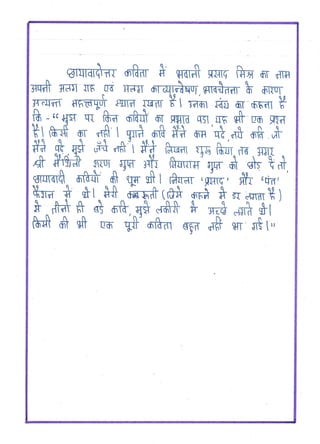 छायावादोत्तर कविता में भवानी प्रसाद मिश्र का नाम
अपनी अलग राह एवं अलग काव्यान्वेषण, भावचेतना के कारण
अत्यन्त महत्त्वपूर्ण स्थान रखता है। उनका स्वंय का कहना है
कि -"मुझ पर किन कवियों का प्रभाव पड़ा, यह भी एक प्रश्न
है। किसी का नहीं। पुराने कवि मैंने कम पढे, नये कवि जो
मैंने पढे मुझे जँचे नहीं। मैंने लिखना शुरू किया तब अगर
श्री मैथिली शरण गुप्त और सियाराम गुप्त को छोड़ दे तो,
छायावादी कवियों की धूम थी। निराला 'प्रसाद' और 'पंत'
फैशन में थे। मेरी (जिसे कहने में डर लगता है)
ये तीनों ही बडे कवि, मुझे लकीरों में अच्छे लगते थे।
किसी की भी एक पूरी कविता बहुत नहीं भा गई।"